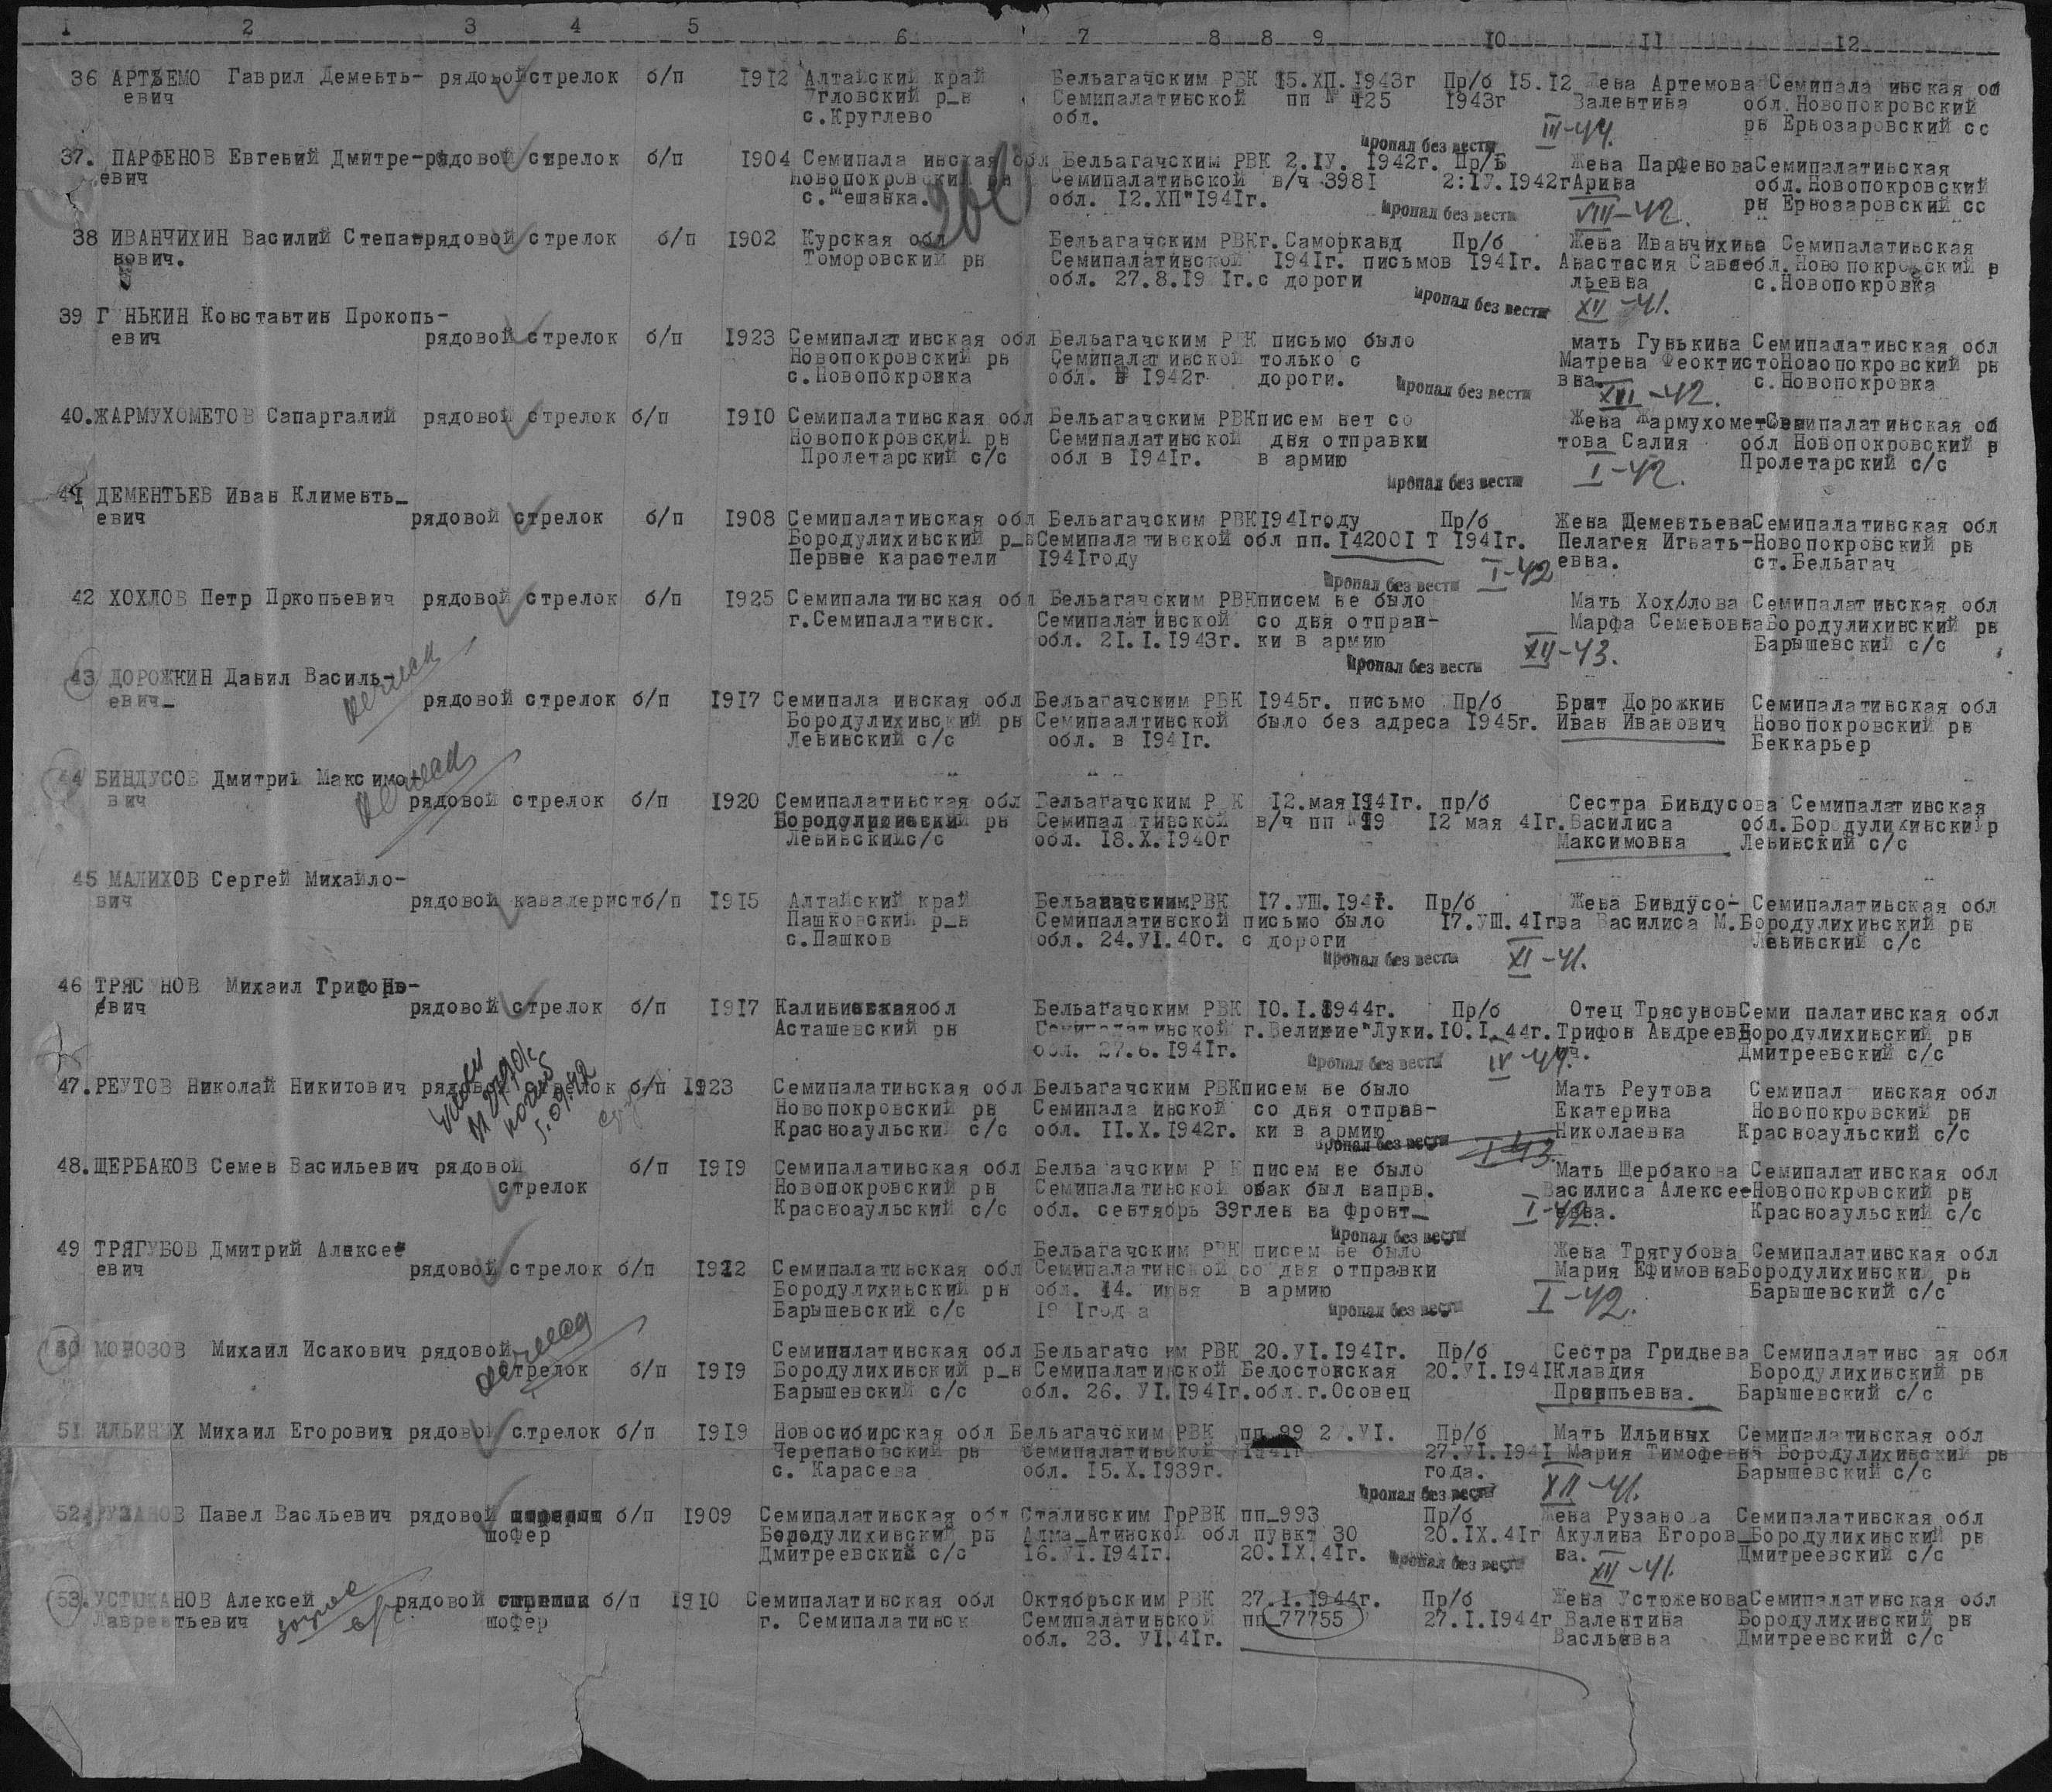 1 2 3 4 5 6 7 8 8 9 10 11 12
36 АРТЪЕМО Гаврил Дементь- рядовой стрелок б/п 1912 Алтайский край Бельагачским РВК 15.ХП.1943г Пр/б 15.12 Жена Артемова Семипала инская об
евич Угловский р_н Семипалатинской пп № 425 1943г Валентина обл.Новопокровский
с.Круглево обл. III-44. рн Ернозаровский сс
пропал без вести
37. ПАРФЕНОВ Евгений Дмитре-рядовой стрелок б/п 1904 Семипала инская обл Бельагачским РВК 2.IУ. 1942г. Пр/Б Жена Парфенова Семипалатинская
евич Новопокровский рн Семипалатинской в/ч 3981 2:IУ.1942г Арина обл.Новопокровский
с.Мешанка. обл. 12.ХП"1941г. пропал без вести VIII-42. рн Ернозаровский сс
38 ИВАНЧИХИН Василий Степан рядовой стрелок б/п 1902 Курская обл Бельагачским РВК г.Саморканд Пр/б Жена Иванчихина Семипалатинская
нович. Томоровский рн Семипалатинской 1941г. письмов 1941г. Анастасия Саве обл.Новопокровский р
обл. 27.8.19 1г.с дороги льевна с.Новопокровка
пропал без вести XII-41.
39 Г НЬКИН Константин Прокопь-
евич рядовой стрелок б/п 1923 Семипалатинская обл Бельагачским Р К письмо было мать Гунькина Семипалатинская обл
Новопокровский рн Семипалатинской только с Матрена Феоктисто Новопокровский рн
с.Новопокровка обл. В 1942г дороги. пропал без вести вна. XII-42. с.Новопокровка
40.ЖАРМУХОМЕТОВ Сапаргалий рядовой стрелок б/п 1910 Семипалатинская обл Бельагачским РВК писем нет со Жена Жармухоме Семипалатинская об
Новопокровский рн Семипалатинской дня отправки това Салия обл Новопокровский р
Пролетарский с/с обл в 1941г. в армию I-42. Пролетарский с/с
пропал без вести
41 ДЕМЕНТЬЕВ Иван Клименть_
евич рядовой стрелок б/п 1908 Семипалатинская обл Бельагачским РВК 1941году Пр/б Жена Дементьева Семипалатинская обл
Бородулихинский р_н Семипалатинской обл пп.142001 Т 1941г. Пелагея Игнать-Новопокровский рн
Первые карастели 1941году евна. ст.Бельагач
пропал без вести I-42
42 ХОХЛОВ Петр Пркопьевич рядовой стрелок б/п 1925 Семипалатинская обл Бельагачским РВК писем не было Мать Хохлова Семипалатинская обл
г.Семипалатинск. Семипалатинской со дня отправ- Марфа Семеновна Бородулихинский рн
обл. 21.I.1943г. ки в армию Барышевский с/с
пропал без вести XII-43.
43 ДОРОЖКИН Данил Василь-
евич_ рядовой стрелок б/п 1917 Семипала инская обл Бельагачским РВК 1945г. письмо Пр/б Брат Дорожкин Семипалатинская обл
Бородулихинский рн Семипаалтинской было без адреса 1945г. Иван Иванович Новопокровский рн
Ленинский с/с обл. в 1941г. Беккарьер
44 БИНДУСОВ Дмитрий Максимо-
вич рядовой стрелок б/п 1920 Семипалатинская обл Бельагачским Р К 12.мая 1941г. пр/б Сестра Биндусова Семипалатинская
Бородулихинский рн Семипал тинской в/ч пп №19 12 мая 41г. Василиса обл.Бородулихинский р
Ленинский с/с обл. 18.Х.1940г Максимовна Ленинский с/с
45 МАЛИХОВ Сергей Михайло-
вич рядовой кавалерист б/п 1915 Алтайский край Бельагачским РВК 17.УШ.1941г. Пр/б Жена Биндусо- Семипалатинская обл
Пашковский р_н Семипалатинской письмо было 17.УШ.41г ва Василиса М.Бородулихинский рн
с.Пашков обл. 24.УI.40г. с дороги Ленинский с/с
пропал без вести XI-41.
46 ТРЯСУНОВ Михаил Трифонь-
евич рядовой стрелок б/п 1917 Калининская обл Бельагачским РВК 10.I.1944г. Пр/б Отец Трясунов Семи палатинская обл
Асташевский рн Семипалатинской г.Великие Луки. 10.I.44г. Трифон Андреев Бородулихинский рн
обл. 27.6.1941г. ич. Дмитреевский с/с
пропал без вести IV-44.
47.РЕУТОВ Николай Никитович рядовой стрелок б/п 1923 Семипалатинская обл Бельагачским РВК писем не было Мать Реутова Семипал инская обл
Новопокровский рн Семипала инской со дня отправ- Екатерина Новопокровский рн
Красноаульский с/с обл. 11.Х.1942г. ки в армию Николаевна Красноаульский с/с
пропал без вести I-43.
48.ЩЕРБАКОВ Семен Васильевич рядовой б/п 1919 Семипалатинская обл Бельагачским Р К писем не было Мать Щербакова Семипалатинская обл
стрелок Новопокровский рн Семипалатинской обак был напрв. Василиса Алексее-Новопокровский рн
Красноаульский с/с обл. сентябрь 39г лен на фронт_ I-42. евна. Красноаульский с/с
пропал без вести
49 ТРЯГУБОВ Дмитрий Алексее Бельагачским РВК писем не было Жена Трягубова Семипалатинская обл
евич рядовой стрелок б/п 1912 Семипалатинская обл Семипалатинской со дня отправки Мария Ефимовна Бородулихински рн
Бородулихинский рн обл. 14. июня в армию Барышевский с/с
Барышевский с/с 1941год а пропал без вести I-42.
50 МОНОЗОВ Михаил Исакович рядовой Семипалатинская обл Бельагачс им РВК 20.УI.1941г. Пр/б Сестра Гриднева Семипалатинс ая обл
стрелок б/п 1919 Бородулихинский р_н Семипалатинской Белостокская 20.УI.1941 Клавдия Бородулихинский рн
Барышевский с/с обл. 26. УI.1941г.обл.г.Осовец Барышевский с/с
51 ИЛЬИНЫХ Михаил Егорович рядовой стрелок б/п 1919 Новосибирская обл Бельагачским РВК пп 99 2 .УI. Пр/б Мать Ильиных Семипалатинская обл
Черепановский рн Семипалатинской 1941г 27.УI.1941 Мария Тимофеевна Бородулихинский рн
с. Карасева обл. 15.Х.1939г. года. Барышевский с/с
пропал без вести XII-41.
52.РУЗАНОВ Павел Васльевич рядовой б/п 1909 Семипалатинская обл Сталинским ГрРВК пп_993 Пр/б Жена Рузанова Семипалатинская обл
шофер Бородулихинский рн Алма_Атинской обл пункт 30 20.IХ.41г Акулина Егоров_Бородулихинский рн
Дмитреевский с/с 16.УI.1941г. 20.IХ.41г. пропал без вести на. XII-41. Дмитреевский с/с
53.УСТЮЖАНОВ Алексей рядовой б/п 1910 Семипалатинская обл Октябрьским РВК 27.I.1944г. Пр/б Жена Устюженова Семипалатинская обл
Лаврентьевич шофер г. Семипалатинск Семипалатинской пп_77755 27.I.1944г Валентина Бородулихинский рн
обл. 23. УI.41г. Васльевна Дмитреевский с/с